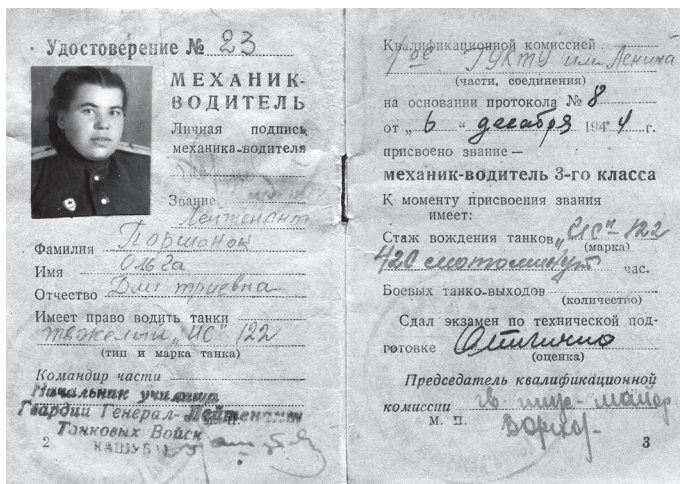 Удостоверение № 23
МЕХАНИК-
ВОДИТЕЛЬ
Личная подпись
механика-водителя
Звание
Лейтенант
Фамилия Поршонок
Имя Ольга
Отчество Дмитриевна
Имеет право водить танки
тяжелый "ИС" 122
(тип и марка танка)
Командир части
Начальник училища
Гвардии Генерал-Лейтенант
Танковых Войск
КАШУБА
2
Квалификационной комиссией
1ое ГУКТУ им. Ленина
(части, соединения)
на основании протокола № 8
от „ 6 " декабря 1944 г.
присвоено звание —
механик-водитель 3-го класса
К моменту присвоения звания
имеет:
Стаж вождения танков „ИС"-122
(марка)
420 мотоминут час.
Боевых танко-выходов
(количество)
Сдал экзамен по технической под-
готовке Отлично
(оценка)
Председатель квалификационной
комиссии гв майор
М. П.
3